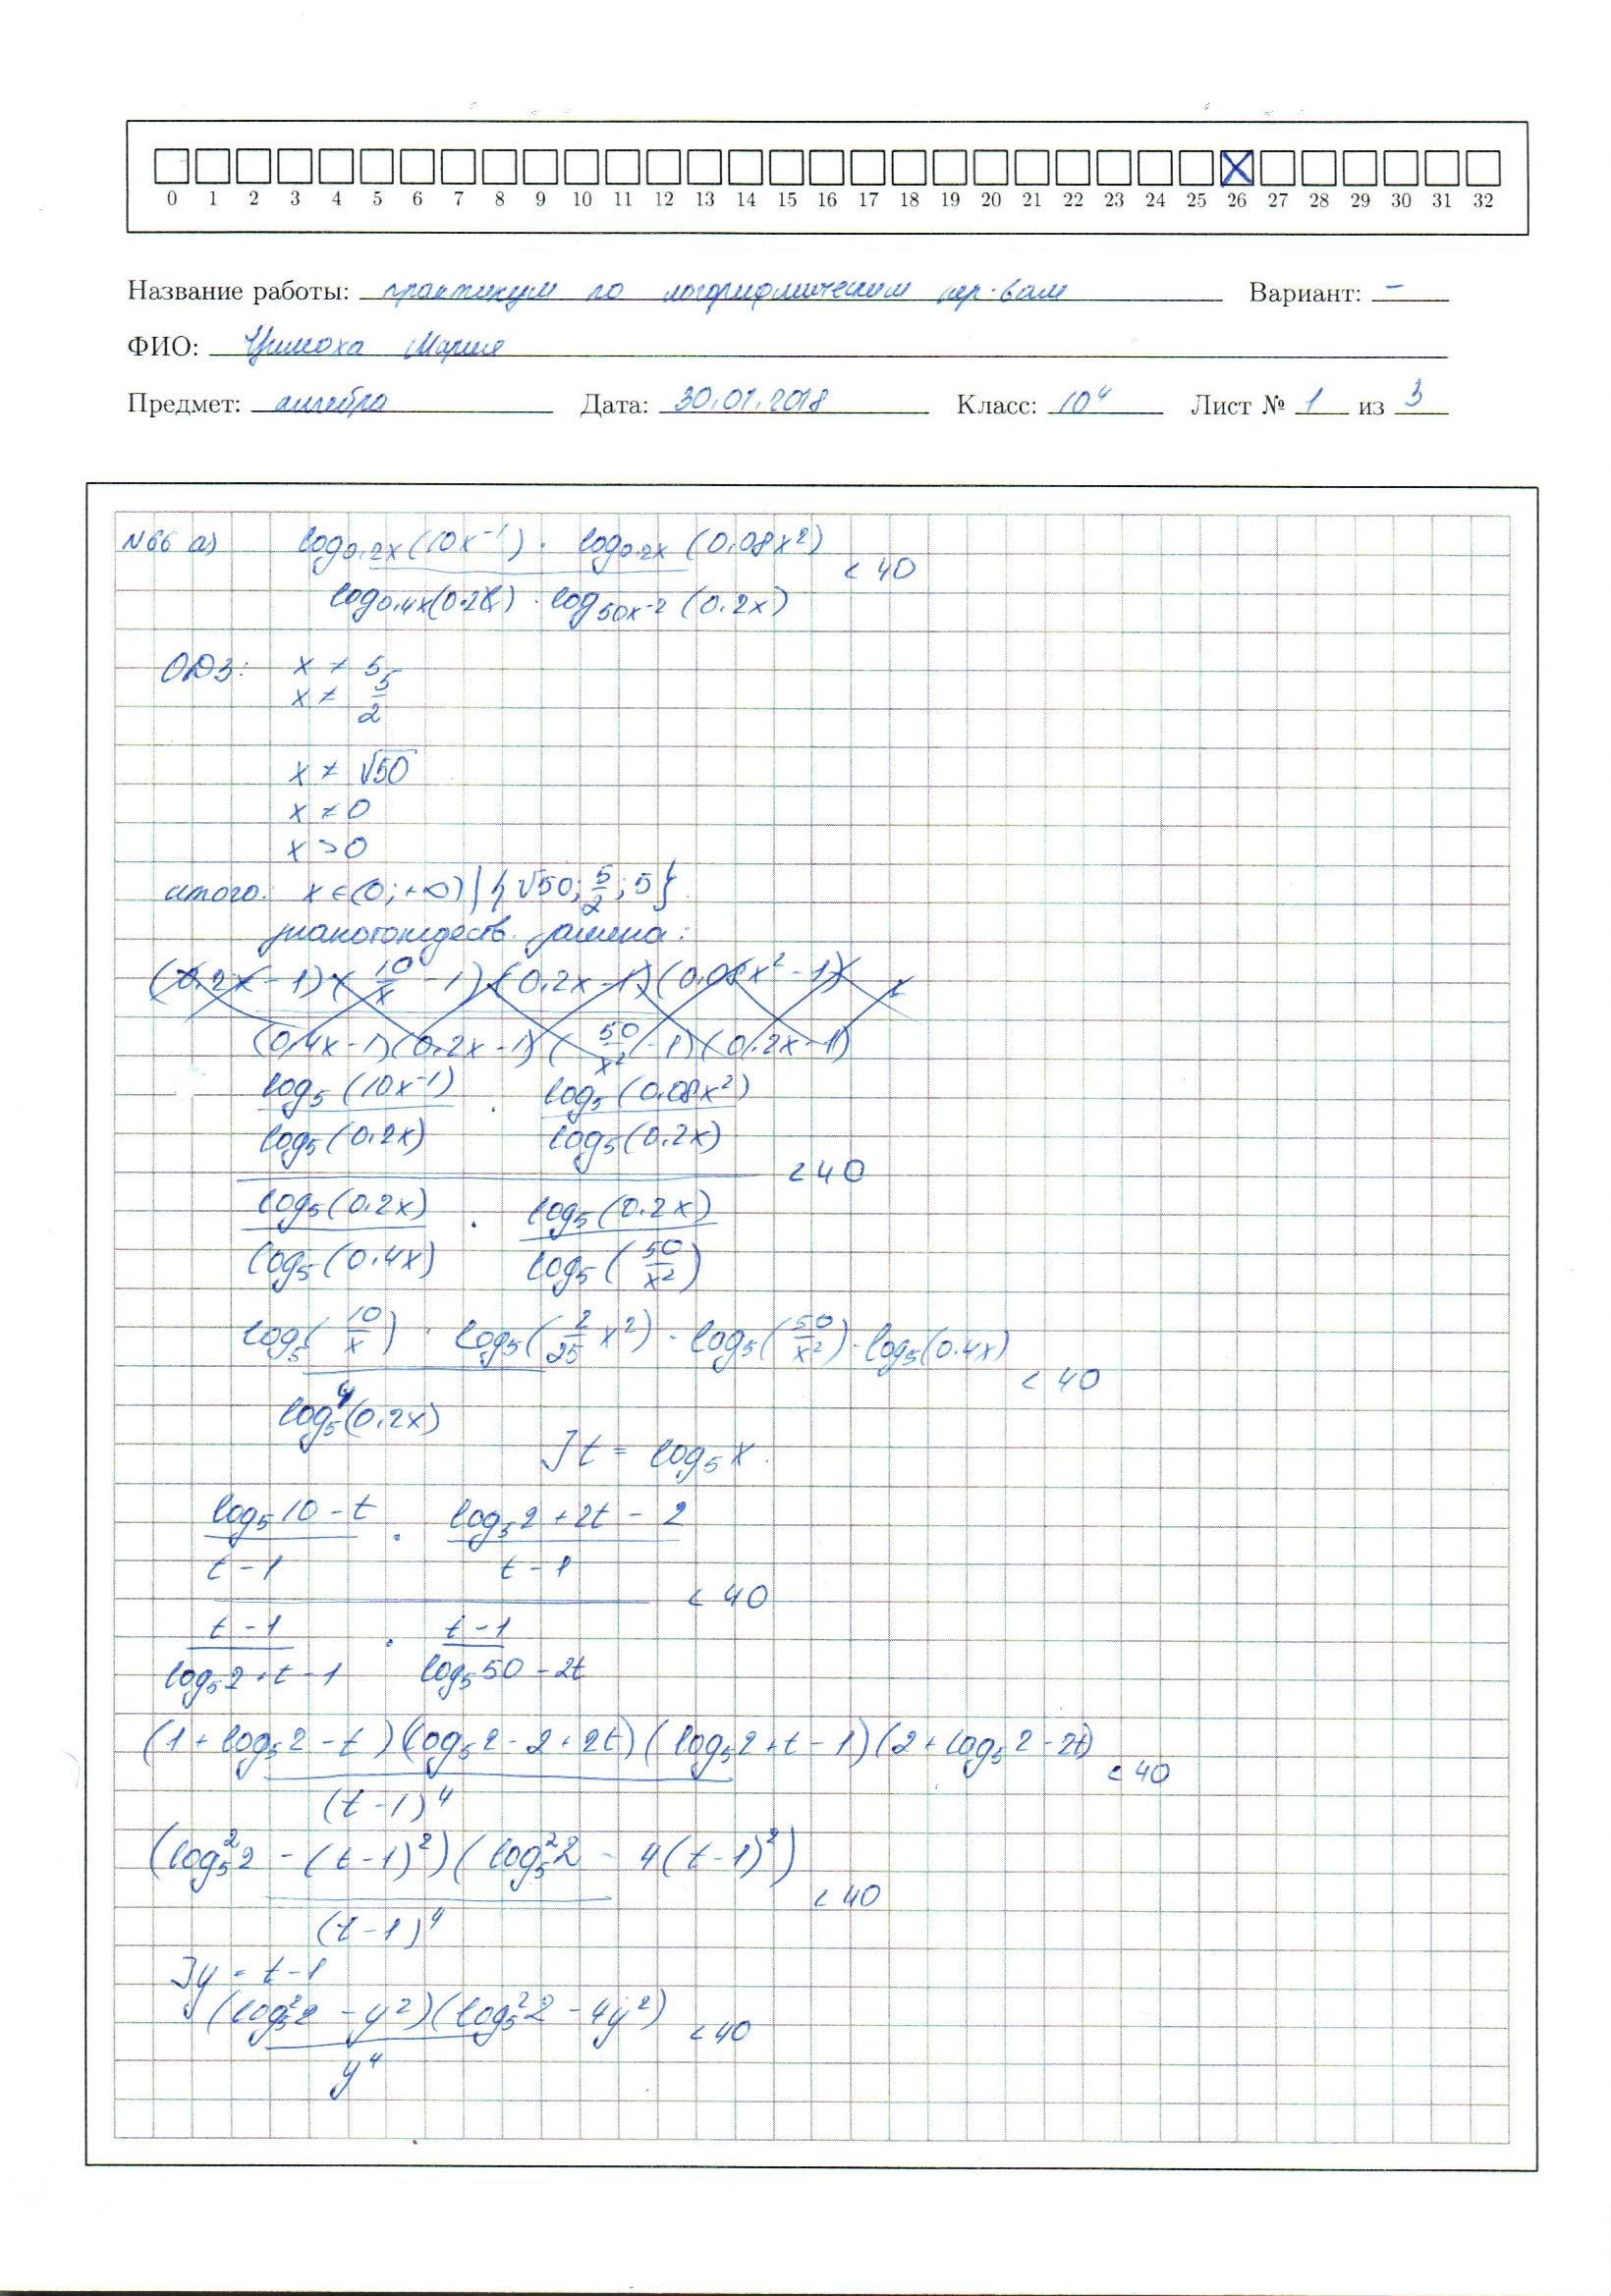 0 1 2 3 4 5 6 7 8 9 10 11 12 13 14 15 16 17 18 19 20 21 22 23 24 25 26 27 28 29 30 31 32
Название работы: практикум по логарифмическим нер-вам Вариант: –
ФИО: Цимоха Мария
Предмет: алгебра Дата: 30.01.2018 Класс: 10⁴ Лист № 1 из 3
N66 а) log₀.₂ₓ(10x⁻¹) · log₀.₂ₓ(0.08x²)
< 40
log₀.₄ₓ(0.2x) · log₅₀ₓ₋₂(0.2x)
ОДЗ: x ≠ 5
x ≠ 5/2
x ≠ √50
x ≠ 0
x > 0
итого: x ∈ (0; +∞) \ {√50; 5/2; 5}
знакотождеств. замена:
(0.2x - 1)(10/x - 1)(0.2x - 1)(0.08x² - 1) <
(0.4x - 1)(0.2x - 1)(50/x² - 1)(0.2x - 1)
log₅(10x⁻¹) · log₅(0.08x²)
log₅(0.2x) log₅(0.2x)
< 40
log₅(0.2x) · log₅(0.2x)
log₅(0.4x) log₅(50/x²)
log₅(10/x) · log₅(2/25 x²) · log₅(50/x²) · log₅(0.4x)
< 40
log₅⁴(0.2x)
] t = log₅x.
log₅10 - t · log₅2 + 2t - 2
t - 1 t - 1
< 40
t - 1 · t - 1
log₅2 + t - 1 log₅50 - 2t
(1 + log₅2 - t)(log₅2 - 2 + 2t)(log₅2 + t - 1)(2 + log₅2 - 2t)
< 40
(t - 1)⁴
(log₅²2 - (t - 1)²)(log₅²2 - 4(t - 1)²)
< 40
(t - 1)⁴
] y = t - 1
(log₅²2 - y²)(log₅²2 - 4y²)
< 40
y⁴